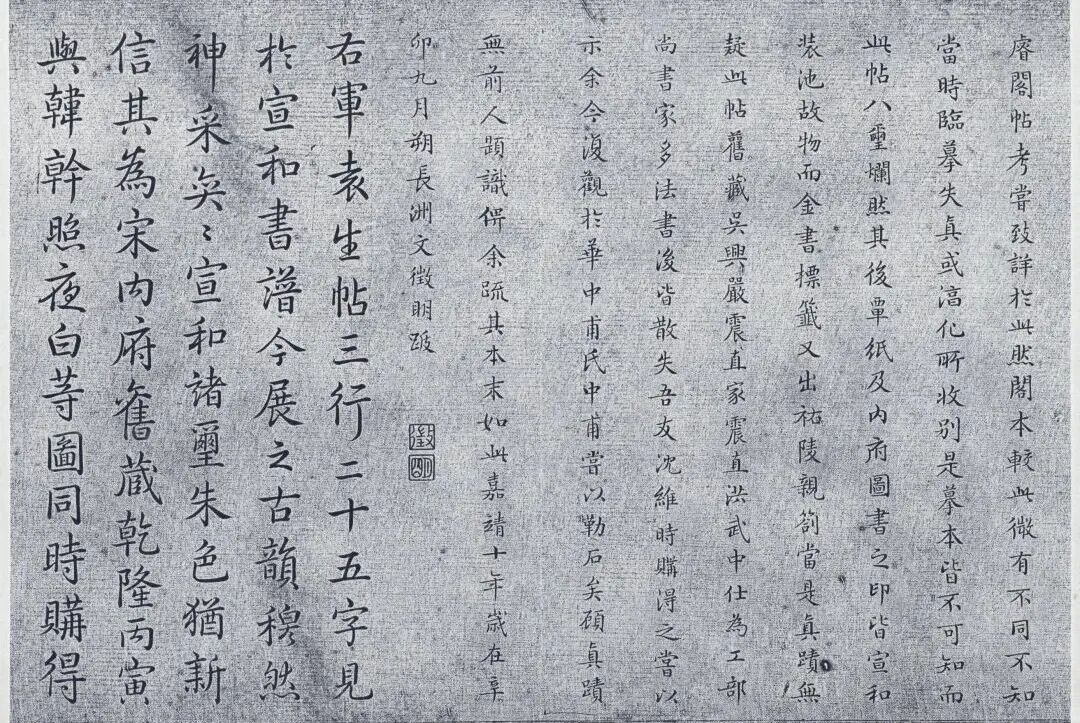 睿閣帖考嘗致詳於此然閣本較此微有不同不知
當時臨摹失真或淳化所收别是摹本皆不可知而
此帖八璽爛然其後覃紙及内府圖書之印皆宣和
裝池故物而金書標籤又出祐陵親劄當是真蹟無
疑此帖舊藏吳興嚴震直家震直洪武中仕為工部
尚書家多法書後皆散失吾友沈維時購得之嘗以
示余今復觀於華中甫氏中甫嘗以勒石矣顧真蹟
無前人題識併余疏其本末如此嘉靖十年歲在辛
卯九月朔長洲文徵明跋
徵
明
右軍袁生帖三行二十五字見
於宣和書譜今展之古韻穆然
神采奕〻宣和諸璽朱色猶新
信其為宋内府舊藏乾隆丙寅
與韓幹照夜白等圖同時購得